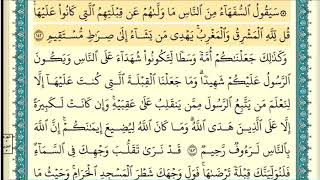 ۞ سَيَقُولُ السُّفَهَاءُ مِنَ النَّاسِ مَا وَلَّىٰهُمْ عَن قِبْلَتِهِمُ الَّتِى كَانُوا۟ عَلَيْهَا
قُل لِّلَّهِ الْمَشْرِقُ وَالْمَغْرِبُ يَهْدِى مَن يَشَآءُ إِلَىٰ صِرَٰطٍ مُّسْتَقِيمٍ ١٤٢
وَكَذَٰلِكَ جَعَلْنَٰكُمْ أُمَّةً وَسَطًا لِّتَكُونُوا۟ شُهَدَآءَ عَلَى النَّاسِ وَيَكُونَ
الرَّسُولُ عَلَيْكُمْ شَهِيدًا وَمَا جَعَلْنَا الْقِبْلَةَ الَّتِى كُنتَ عَلَيْهَآ إِلَّا
لِنَعْلَمَ مَن يَتَّبِعُ الرَّسُولَ مِمَّن يَنقَلِبُ عَلَىٰ عَقِبَيْهِ وَإِن كَانَتْ لَكَبِيرَةً
إِلَّا عَلَى الَّذِينَ هَدَى اللَّهُ وَمَا كَانَ اللَّهُ لِيُضِيعَ إِيمَٰنَكُمْ إِنَّ اللَّهَ
بِالنَّاسِ لَرَءُوفٌ رَّحِيمٌ ١٤٣ قَدْ نَرَىٰ تَقَلُّبَ وَجْهِكَ فِى السَّمَآءِ
فَلَنُوَلِّيَنَّكَ قِبْلَةً تَرْضَىٰهَا فَوَلِّ وَجْهَكَ شَطْرَ الْمَسْجِدِ الْحَرَامِ وَحَيْثُ مَا